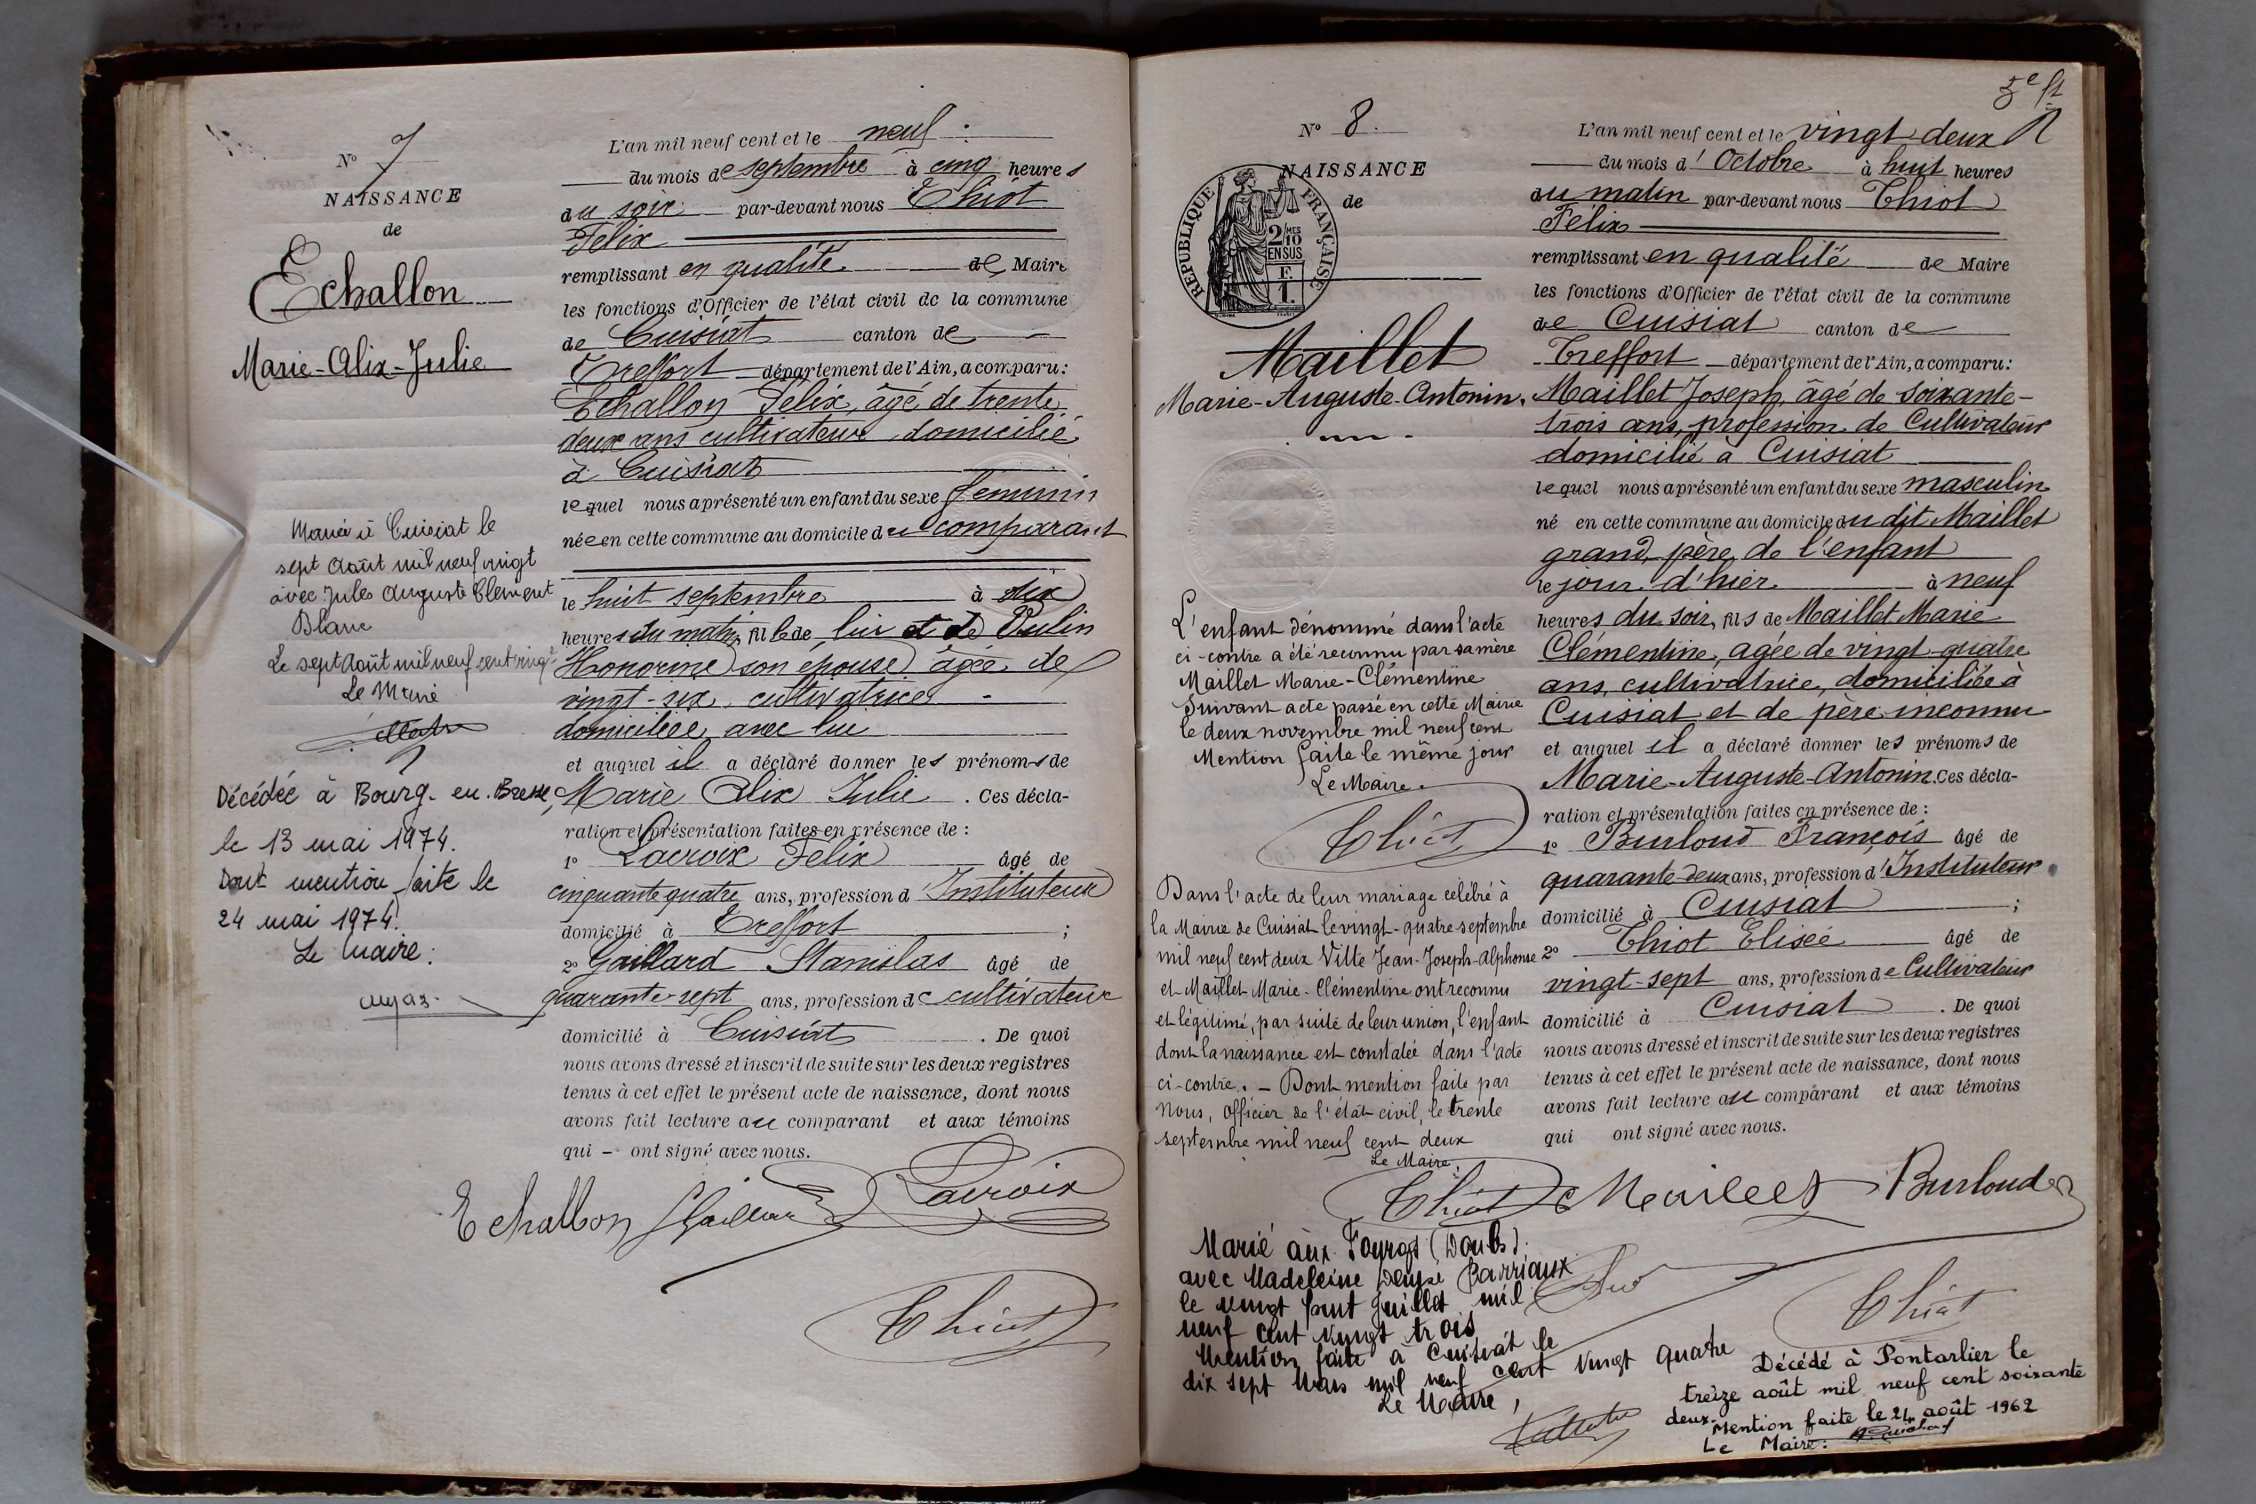 N° 7
NAISSANCE
de
Echallon
Marie-Alix-Julie
Mariée à Cuisiat le
sept Août mil neuf vingt
avec Jules Auguste Clément
Blanc
Le sept Août mil neuf cent vingt
Le Maire
Décédée à Bourg-en-Bresse,
le 13 mai 1974.
Dont mention faite le
24 mai 1974.
Le Maire :
L'an mil neuf cent et le neuf
du mois de septembre à cinq heures
du soir par-devant nous Thiot
Félix
remplissant en qualité de Maire
les fonctions d'Officier de l'état civil de la commune
de Cuisiat canton de
Treffort département de l'Ain, a comparu :
Echallon Félix, âgé de trente
deux ans cultivateur domicilié
à Cuisiat
lequel nous a présenté un enfant du sexe féminin
née en cette commune au domicile du comparant
le huit septembre à six
heures du matin, fille de lui et de Vulin
Honorine son épouse âgée de
vingt-six, cultivatrice
domiciliée avec lui
et auquel il a déclaré donner les prénoms de
Marie Alix Julie. Ces décla-
ration et présentation faites en présence de :
1° Lacroix Félix âgé de
cinquante quatre ans, profession d'Instituteur
domicilié à Treffort ;
2° Gaillard Stanislas âgé de
quarante-sept ans, profession de cultivateur
domicilié à Cuisiat. De quoi
nous avons dressé et inscrit de suite sur les deux registres
tenus à cet effet le présent acte de naissance, dont nous
avons fait lecture au comparant et aux témoins
qui – ont signé avec nous.
Echallon Gaillard Lacroix
Thiot
5e ft
N° 8.
NAISSANCE
de
REPUBLIQUE FRANÇAISE
2 MES
10
EN SUS
F.
1.
Maillet
Marie-Auguste-Antonin.
L'enfant dénommé dans l'acte
ci-contre a été reconnu par sa mère
Maillet Marie-Clémentine
suivant acte passé en cette Mairie
le deux novembre mil neuf cent
Mention faite le même jour
Le Maire.
Thiot
Dans l'acte de leur mariage célébré à
la Mairie de Cuisiat le vingt-quatre septembre
mil neuf cent deux Ville Jean-Joseph-Alphonse
et Maillet Marie-Clémentine ont reconnu
et légitimé, par suite de leur union, l'enfant
dont la naissance est constatée dans l'acte
ci-contre. – Dont mention faite par
Nous, officier de l'état civil, le trente
septembre mil neuf cent deux
Le Maire.
Thiot
L'an mil neuf cent et le vingt deux
du mois d'Octobre à huit heures
du matin par-devant nous Thiot
Félix
remplissant en qualité de Maire
les fonctions d'Officier de l'état civil de la commune
de Cuisiat canton de
Treffort département de l'Ain, a comparu :
Maillet Joseph, âgé de soixante-
trois ans, profession de Cultivateur
domicilié à Cuisiat
lequel nous a présenté un enfant du sexe masculin
né en cette commune au domicile du dit Maillet
grand-père de l'enfant
le jour d'hier à neuf
heures du soir, fils de Maillet Marie
Clémentine, agée de vingt-quatre
ans, cultivatrice, domiciliée à
Cuisiat et de père inconnu
et auquel il a déclaré donner les prénoms de
Marie-Auguste-Antonin. Ces décla-
ration et présentation faites en présence de :
1° Burloud François âgé de
quarante deux ans, profession d'Instituteur
domicilié à Cuisiat ;
2° Thiot Elisée âgé de
vingt-sept ans, profession de Cultivateur
domicilié à Cuisiat. De quoi
nous avons dressé et inscrit de suite sur les deux registres
tenus à cet effet le présent acte de naissance, dont nous
avons fait lecture au comparant et aux témoins
qui ont signé avec nous.
Maillet Burloud
Thiot
Marié aux Fourgs (Doubs)
avec Madeleine Denyse Barriaux
le vingt huit Juillet mil
neuf cent vingt trois
Mention faite à Cuisiat le
dix sept Mars mil neuf cent vingt quatre
Le Maire,
Décédé à Pontarlier le
treize août mil neuf cent soixante
deux.
Mention faite le 24 août 1962
Le Maire :